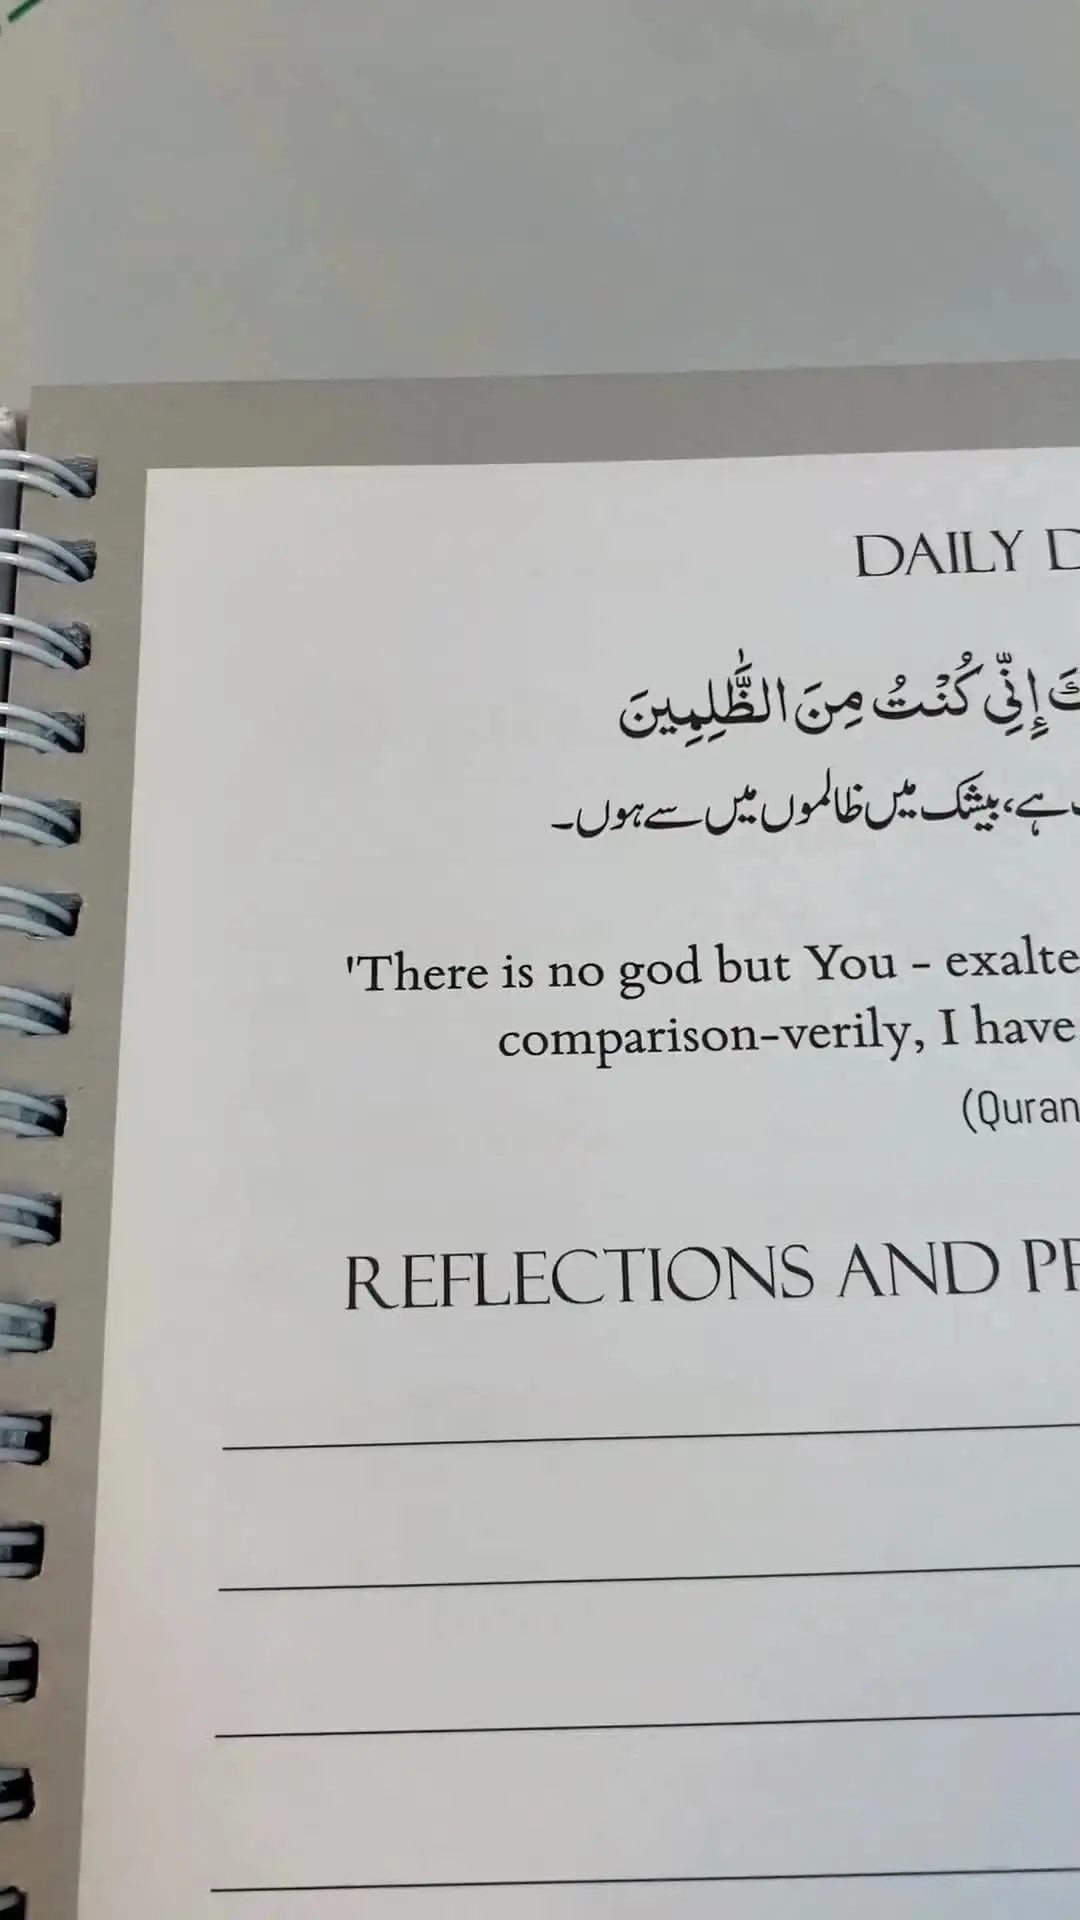 DAILY
إِنِّي كُنْتُ مِنَ الظّٰلِمِينَ
ہے، بیشک میں ظالموں میں سے ہوں۔
'There is no god but You - exalte
comparison-verily, I have
(Quran
REFLECTIONS AND